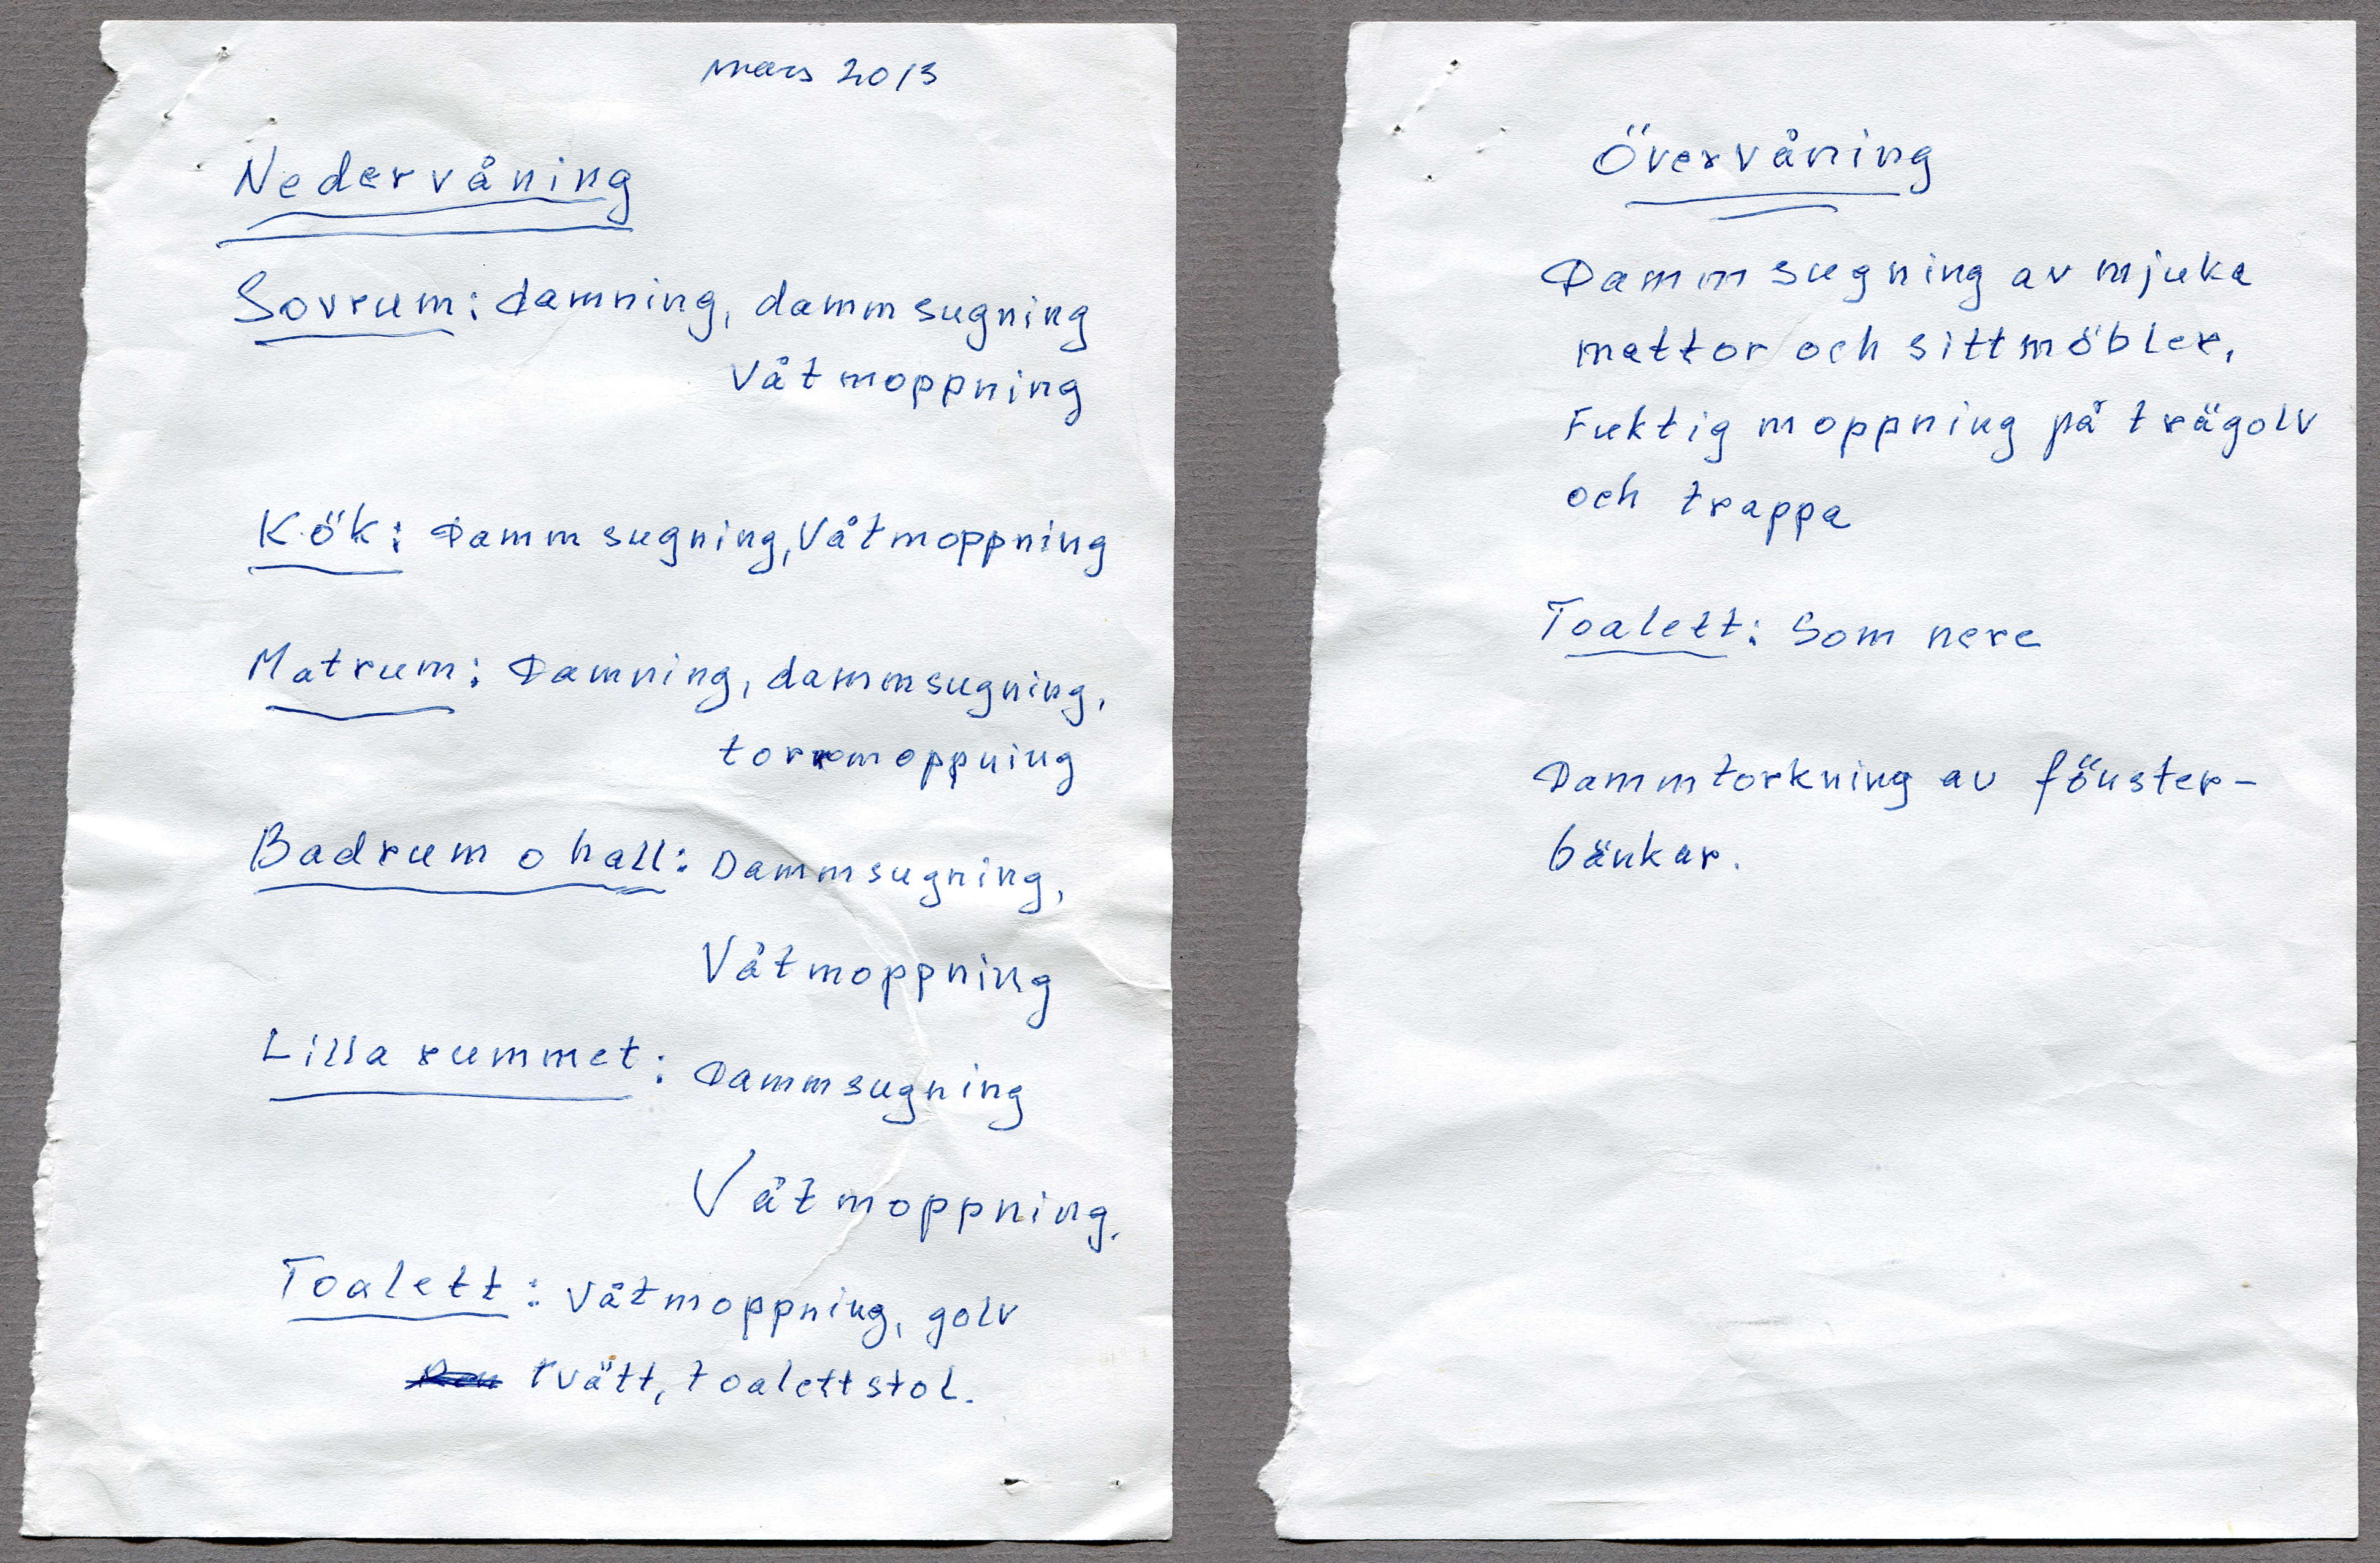 mars 2013
Nedervåning
Sovrum: damning, dammsugning
Våtmoppning
Kök: Dammsugning, Våtmoppning
Matrum: Damning, dammsugning,
torrmoppning
Badrum o hall: Dammsugning,
Våtmoppning
Lilla rummet: Dammsugning
Våtmoppning.
Toalett: Våtmoppning, golv
tvätt, toalettstol.
Övervåning
Dammsugning av mjuka
mattor och sittmöbler,
Fuktig moppning på trägolv
och trappa
Toalett: Som nere
Dammtorkning av fönster-
bänkar.